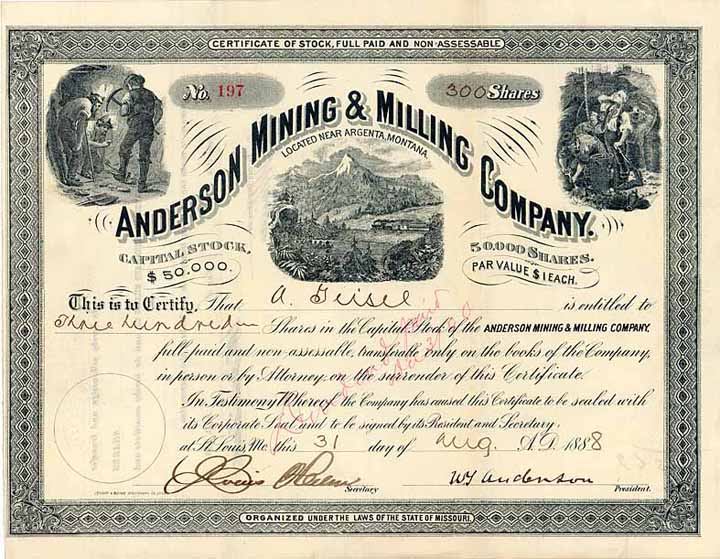 CERTIFICATE OF STOCK, FULL PAID AND NON-ASSESSABLE
No. 197
300 Shares
ANDERSON MINING & MILLING COMPANY.
LOCATED NEAR ARGENTA, MONTANA.
CAPITAL STOCK,
$50.000.
50.000 SHARES.
PAR VALUE $1 EACH.
This is to Certify, That A. Geisel is entitled to
Three hundred Shares in the Capital Stock of the ANDERSON MINING & MILLING COMPANY.
full-paid and non-assessable, transferable only on the books of the Company,
in person or by Attorney, on the surrender of this Certificate.
In Testimony Whereof, the Company has caused this Certificate to be sealed with
its Corporate Seal and to be signed by its President and Secretary,
at St. Louis, Mo. this 31 day of Aug. A.D. 1888
Louis
Secretary
W Anderson
President.
ORGANIZED UNDER THE LAWS OF THE STATE OF MISSOURI.